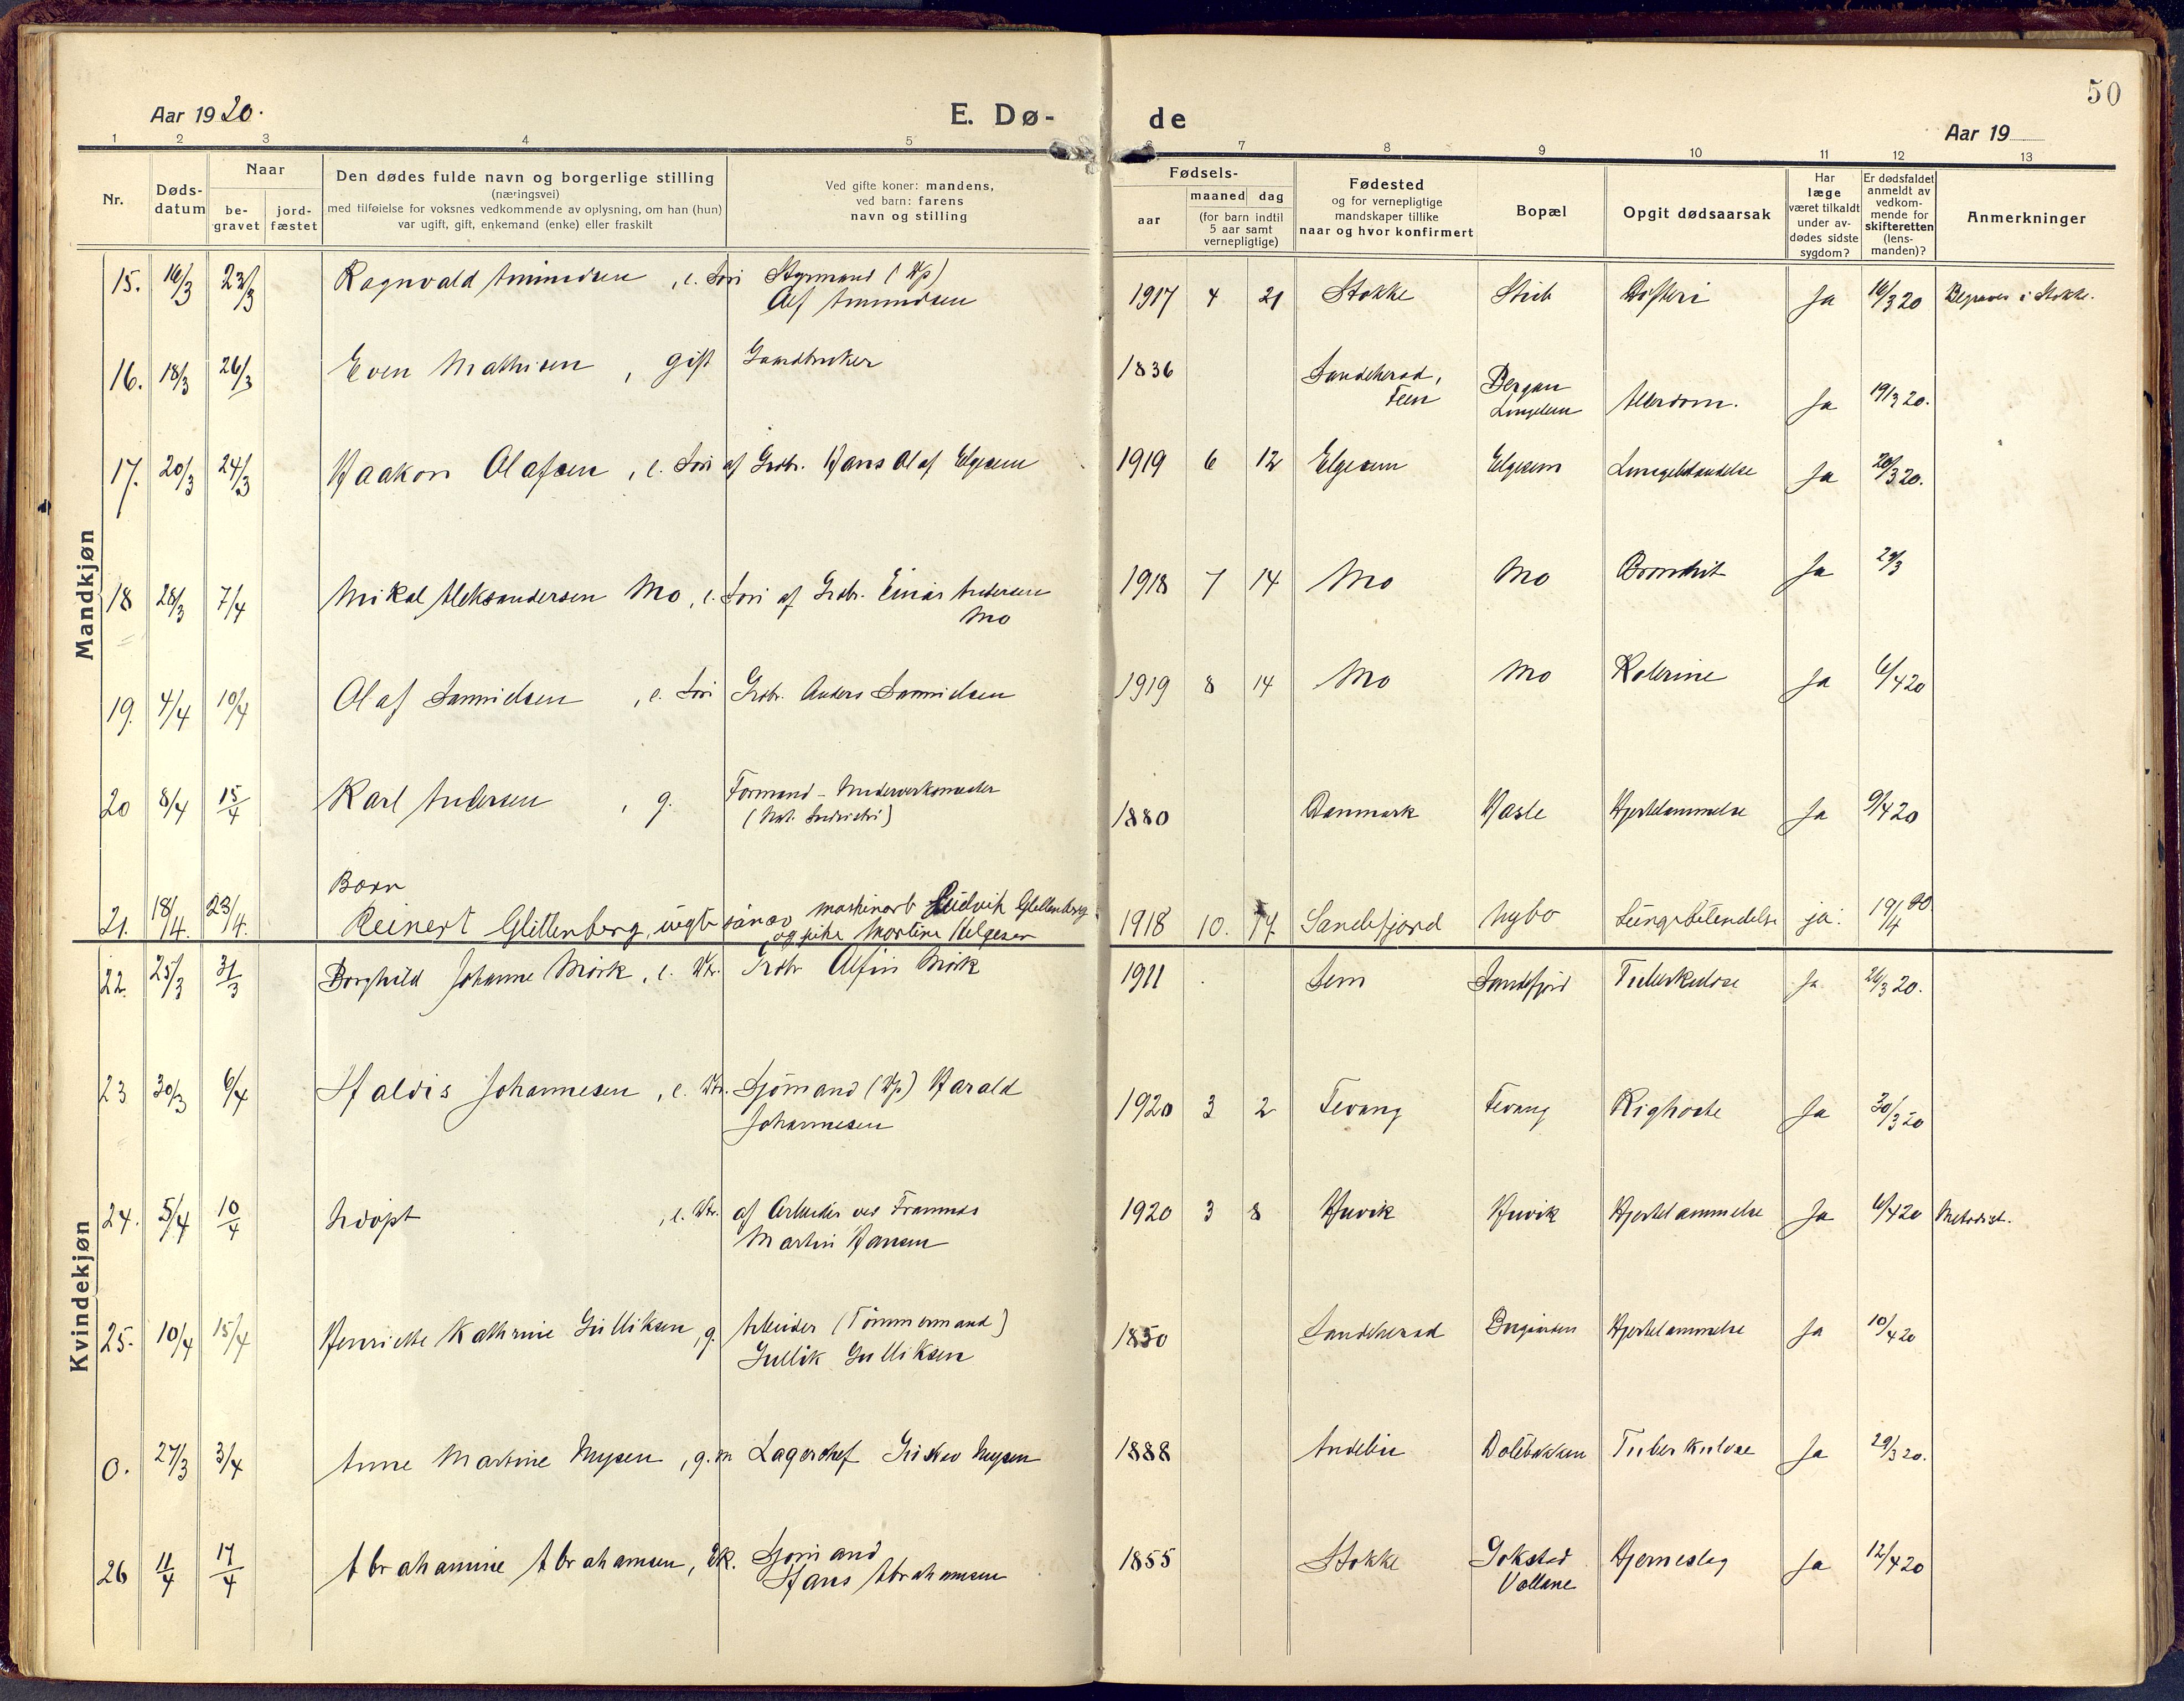 50
Aar 1920.
E. Dø-
de
Aar 19
1 2 3 4 5 6 7 8 9 10 11 12 13
Nr.
Døds-
datum
Naar
be-
gravet
jord-
fæstet
Den dødes fulde navn og borgerlige stilling
(næringsvei)
med tilføielse for voksnes vedkommende av oplysning, om han (hun)
var ugift, gift, enkemand (enke) eller fraskilt
Ved gifte koner: mandens,
ved barn: farens
navn og stilling
Fødsels-
aar
maaned dag
(for barn indtil
5 aar samt
vernepligtige)
Fødested
og for vernepligtige
mandskaper tillike
naar og hvor konfirmert
Bopæl
Opgit dødsaarsak
Har
læge
været tilkaldt
under av-
dødes sidste
sygdom?
Er dødsfaldet
anmeldt av
vedkom-
mende for
skifteretten
(lens-
manden)?
Anmerkninger
Mandkjøn
15. 16/3 23/3 Ragnvald Amundsen, e. Søn Styrmand (Hp) 1917 4 21 Stokke Difteri Ja 16/3 20 Begraves i Stokke.
Alf Amundsen
16. 18/3 26/3 Even Mathisen, gift Gaardbruker 1836 Sandeherad, Bergan Alderdom. Ja 19/3 20.
Feen
17. 20/3 24/3 Haakon Olafsen, e. Søn af Grdbr. Hans Olaf Elgesem 1919 6 12 Elgesem Elgesem Lungebetændelse Ja 20/3 20.
18 28/3 7/4 Mikal Aleksandersen Mo, e. Søn af Grdbr. Einar Andersen 1918 7 14 Mo Mo Bronchit Ja 29/3
Mo
19. 4/4 10/4 Olaf Samuelsen, e. Søn Grdbr. Anders Samuelsen 1919 8 14 Mo Mo Kolerine Ja 6/4 20
20 8/4 15/4 Karl Andersen, g. Formand - Underverksmester 1880 Danmark Hasle Hjertelammelse Ja 9/4 20
Barn
21. 18/4. 23/4. Reinert Glittenberg, uegte søn av maskinarb Ludvik Glittenberg 1918 10. 14 Sandefjord Nybo Lungebetendelse ja.
og pike Martine Helgesen
Kvindekjøn
22. 25/3 31/3 Borghild Johanne Mørk, e. Dtr. Grdbr Alfin Mørk 1911 Sem Sandefjord Tuberkulose Ja 26/3 20.
23 30/3 6/4 Haldis Johannesen, e. Dtr. Sjømand (Hp) Harald 1920 3 2 Tevang Tevang Kighoste Ja 30/3 20
Johannesen
24. 5/4 10/4 Udøpt, e. Dtr. af Arbeider ved Framnæs 1920 3 8 Huvik Huvik Hjertelammelse Ja 6/4 20 Metodist.
Martin Hansen
25. 10/4 15/4 Henriette Kathrine Gulliksen, g. Arbeider (Tømmermand) 1850 Sandeherad Hjertelammelse Ja 10/4 20
Gullik Gulliksen
0. 27/3 3/4 Anne Martine Mysen, g. m Lagerchef Mysen 1888 Andebu Dølebakken Tuberkulose Ja 29/3 20.
26 11/4 17/4 Abrahamine Abrahamsen, Ek. Sjømand 1855 Stokke Gokstad Hjerneslag Ja 12/4 20
Hans Abrahamsen Vollane